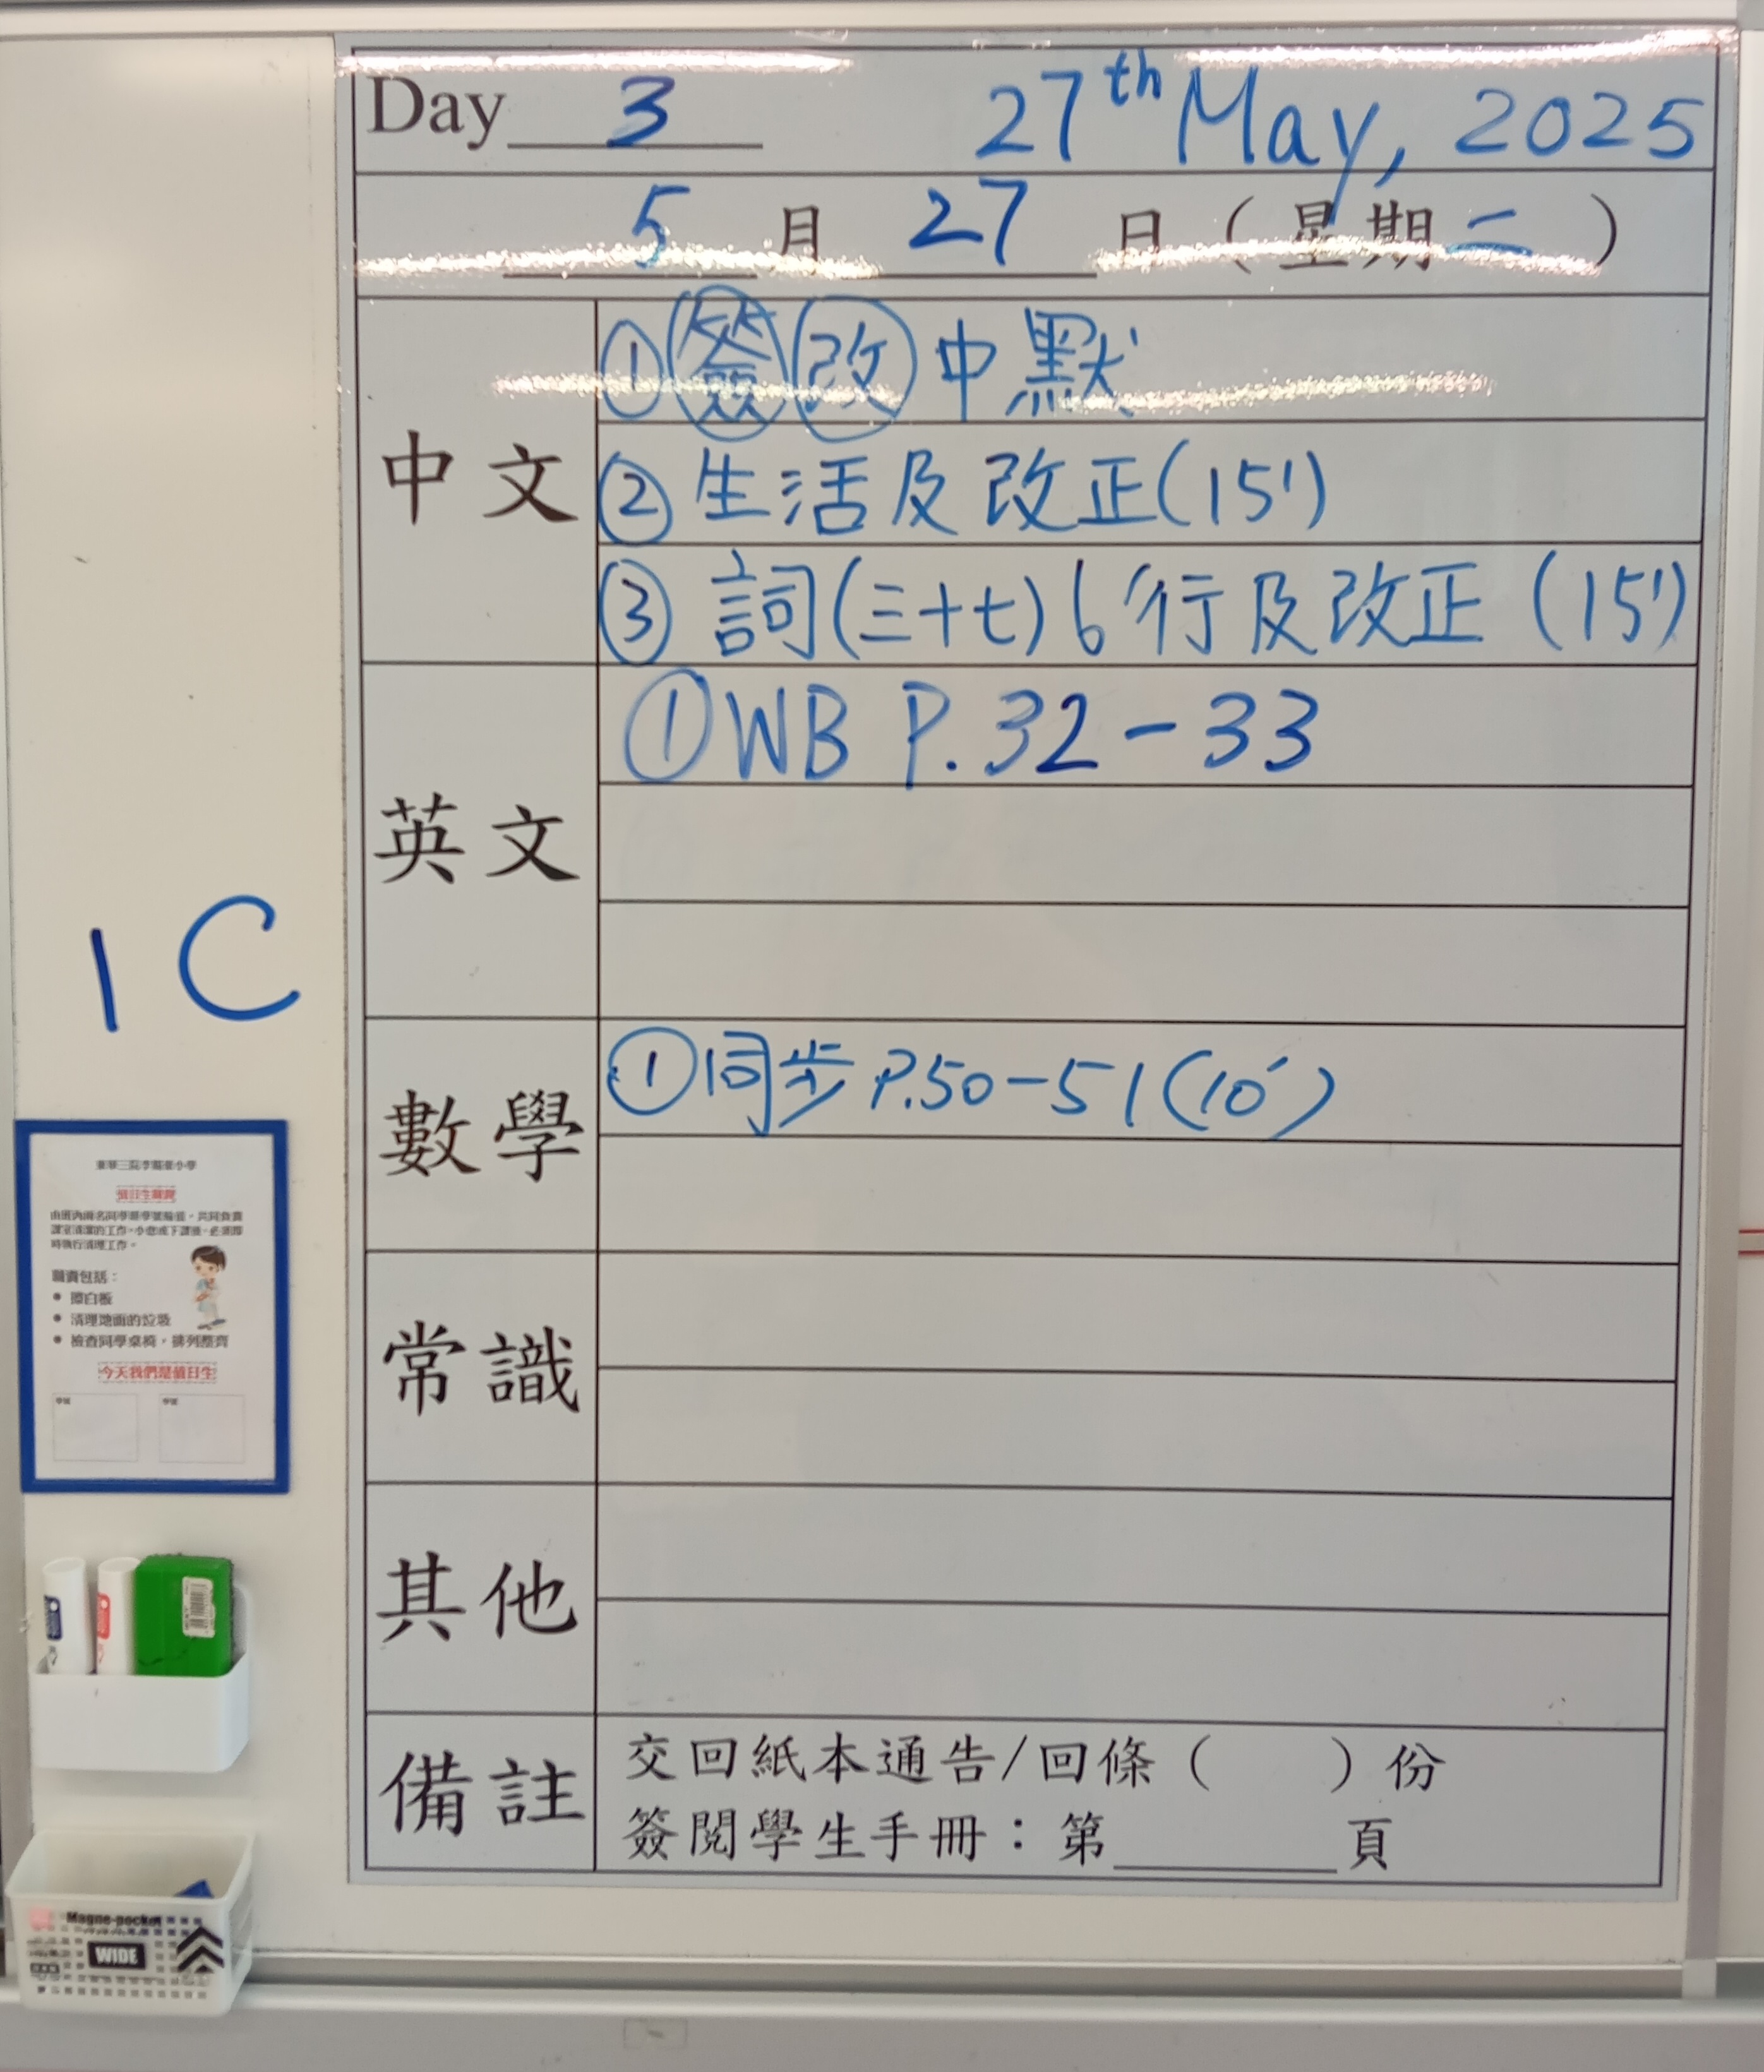 Day 3 27th May, 2025
5 月 27 日（星期二）
中文
① 簽 改 中默
② 生活及改正(15')
③ 詞(三十七)6行及改正 (15')
英文
① WB P.32-33
1C
數學
① 同步 P.50-51(10')
值日生職責
職責包括：
• 擦白板
• 清理地面的垃圾
• 檢查同學桌椅，排列整齊
今天我們是值日生
學號 學號
常識
其他
備註
交回紙本通告/回條（ ）份
簽閱學生手冊：第 頁
Magne-pocket
WIDE